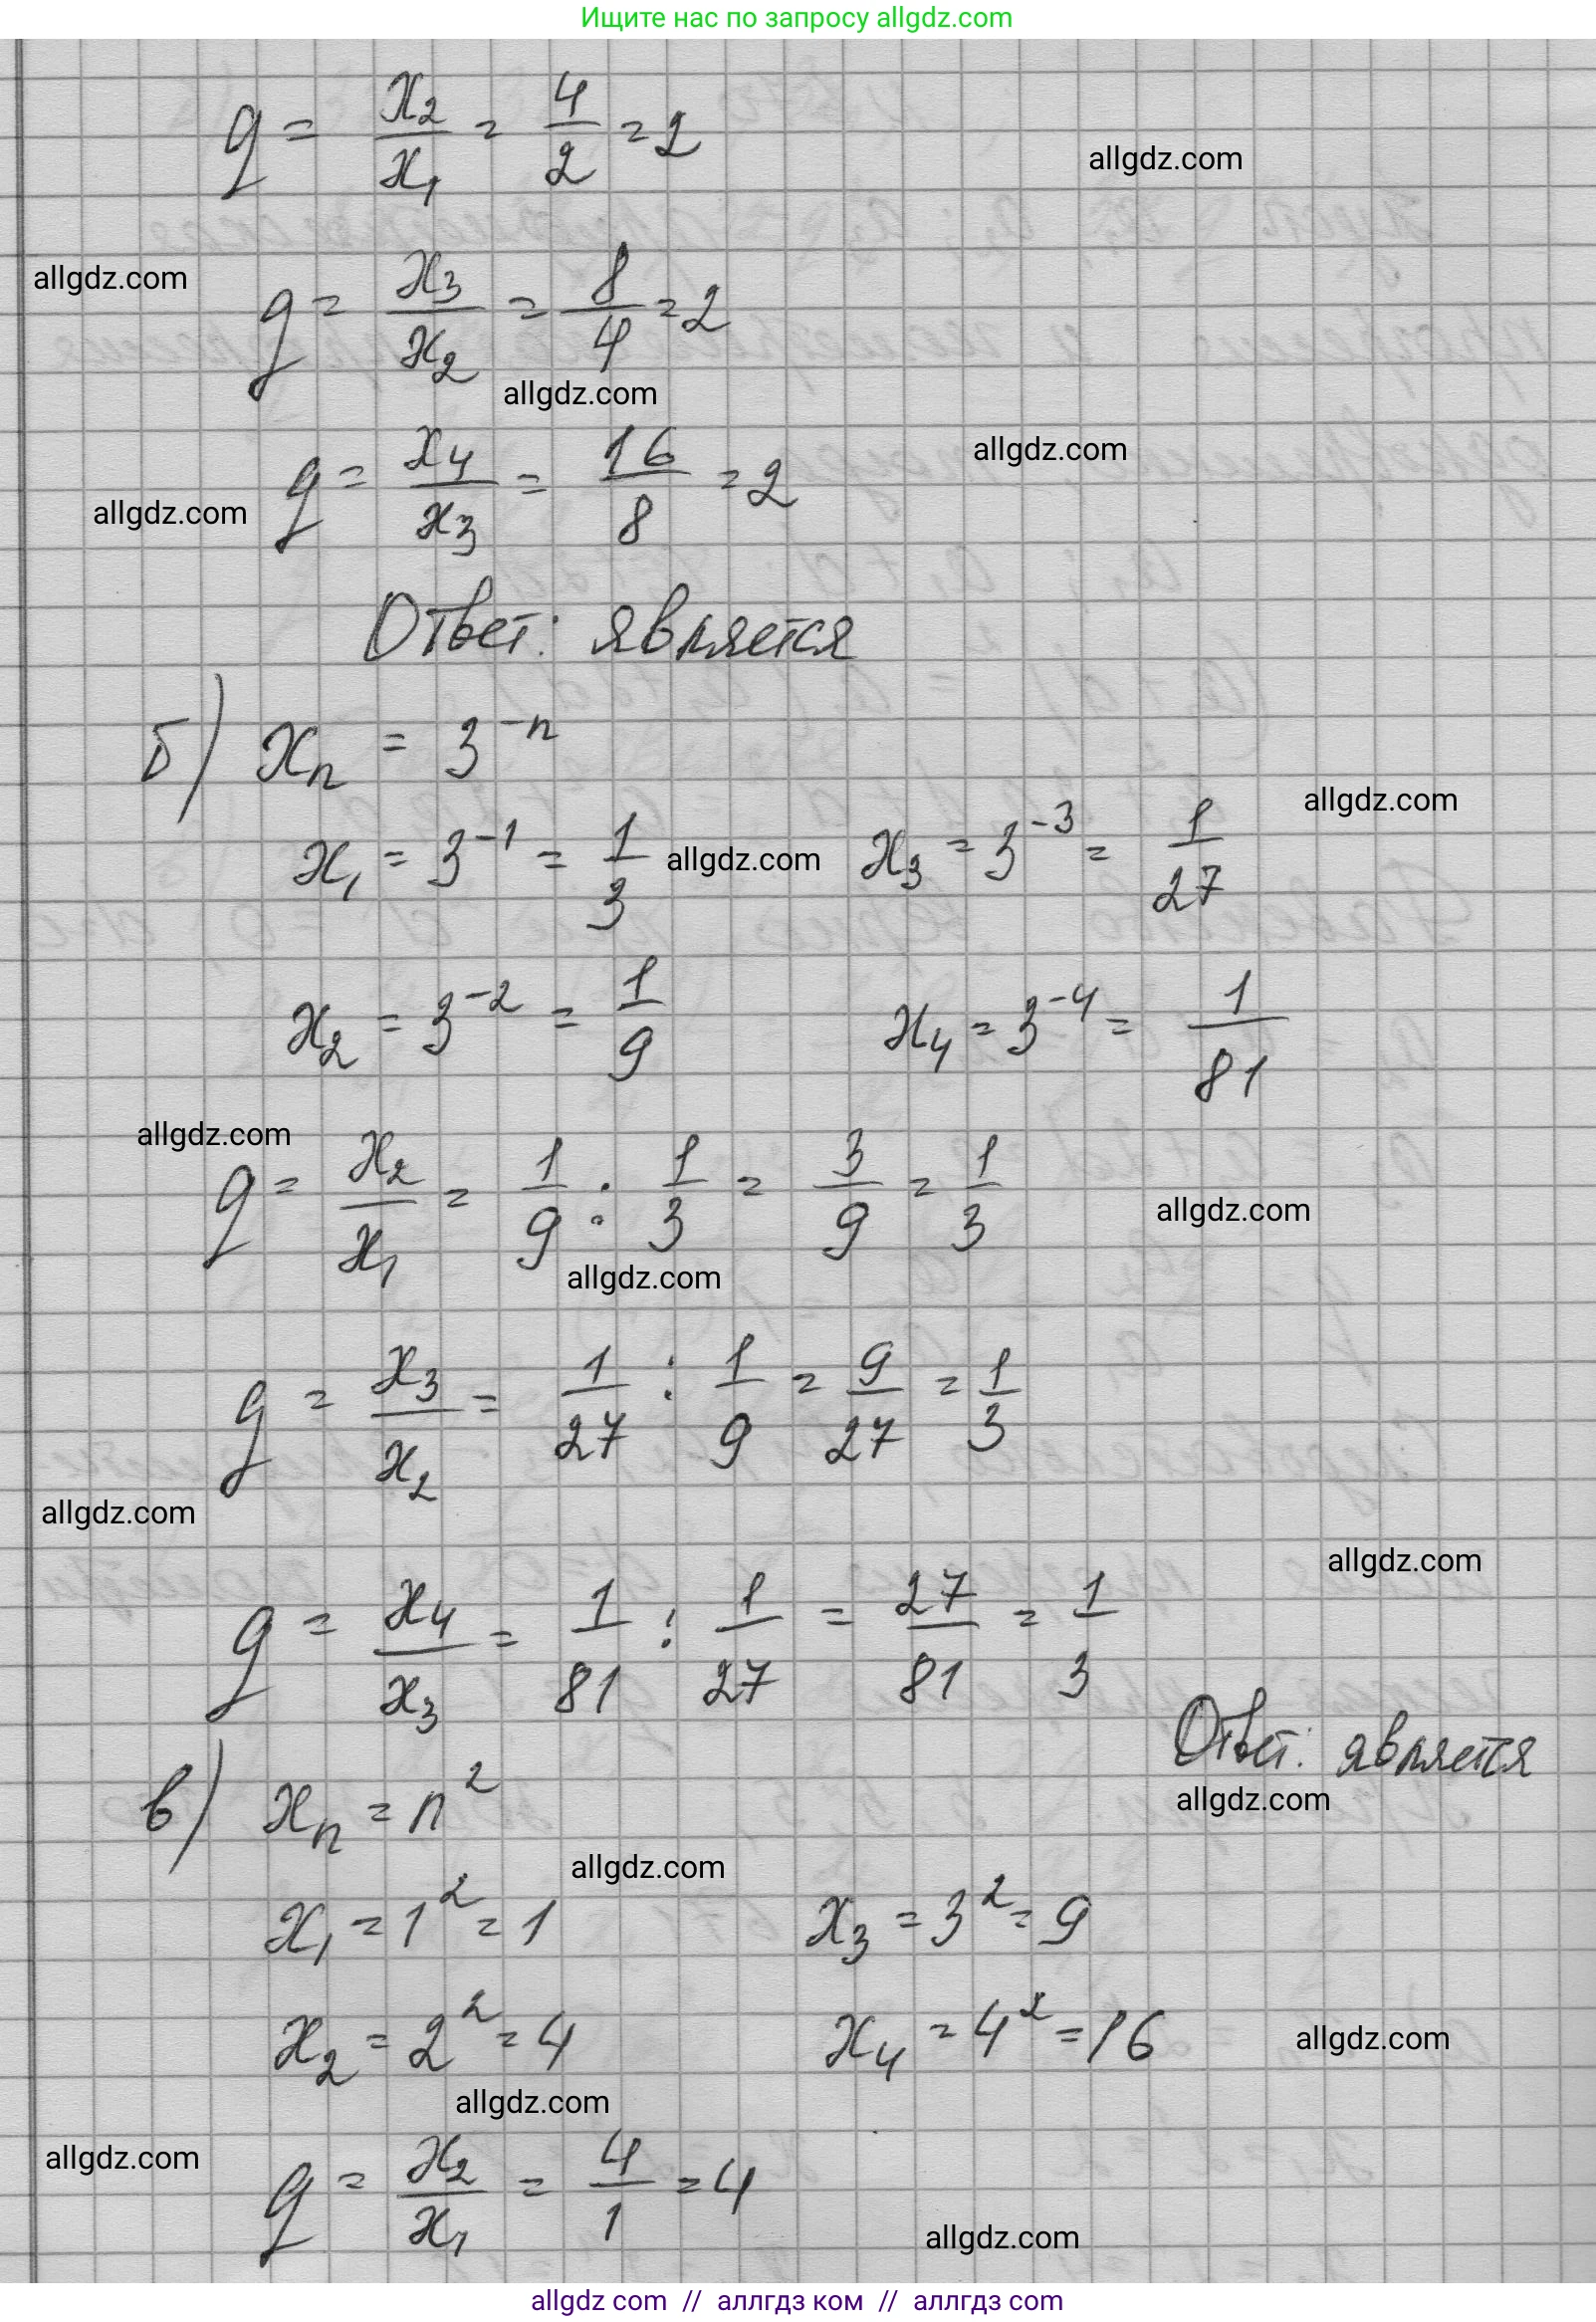 Ищите нас по запросу allgdz.com
q = x₂/x₁ = 4/2 = 2
allgdz.com
allgdz.com
q = x₃/x₂ = 8/4 = 2
allgdz.com
q = x₄/x₃ = 16/8 = 2
allgdz.com
allgdz.com
Ответ: является
б) xₙ = 3⁻ⁿ
allgdz.com
x₁ = 3⁻¹ = 1/3 allgdz.com x₃ = 3⁻³ = 1/27
x₂ = 3⁻² = 1/9 x₄ = 3⁻⁴ = 1/81
allgdz.com
q = x₂/x₁ = 1/9 : 1/3 = 3/9 = 1/3
allgdz.com
allgdz.com
q = x₃/x₂ = 1/27 : 1/9 = 9/27 = 1/3
allgdz.com
allgdz.com
q = x₄/x₃ = 1/81 : 1/27 = 27/81 = 1/3
Ответ: является
allgdz.com
в) xₙ = n²
allgdz.com
x₁ = 1² = 1 x₃ = 3² = 9
x₂ = 2² = 4 x₄ = 4² = 16
allgdz.com
allgdz.com
allgdz.com
q = x₂/x₁ = 4/1 = 4
allgdz.com
allgdz com // аллгдз ком // аллгдз com